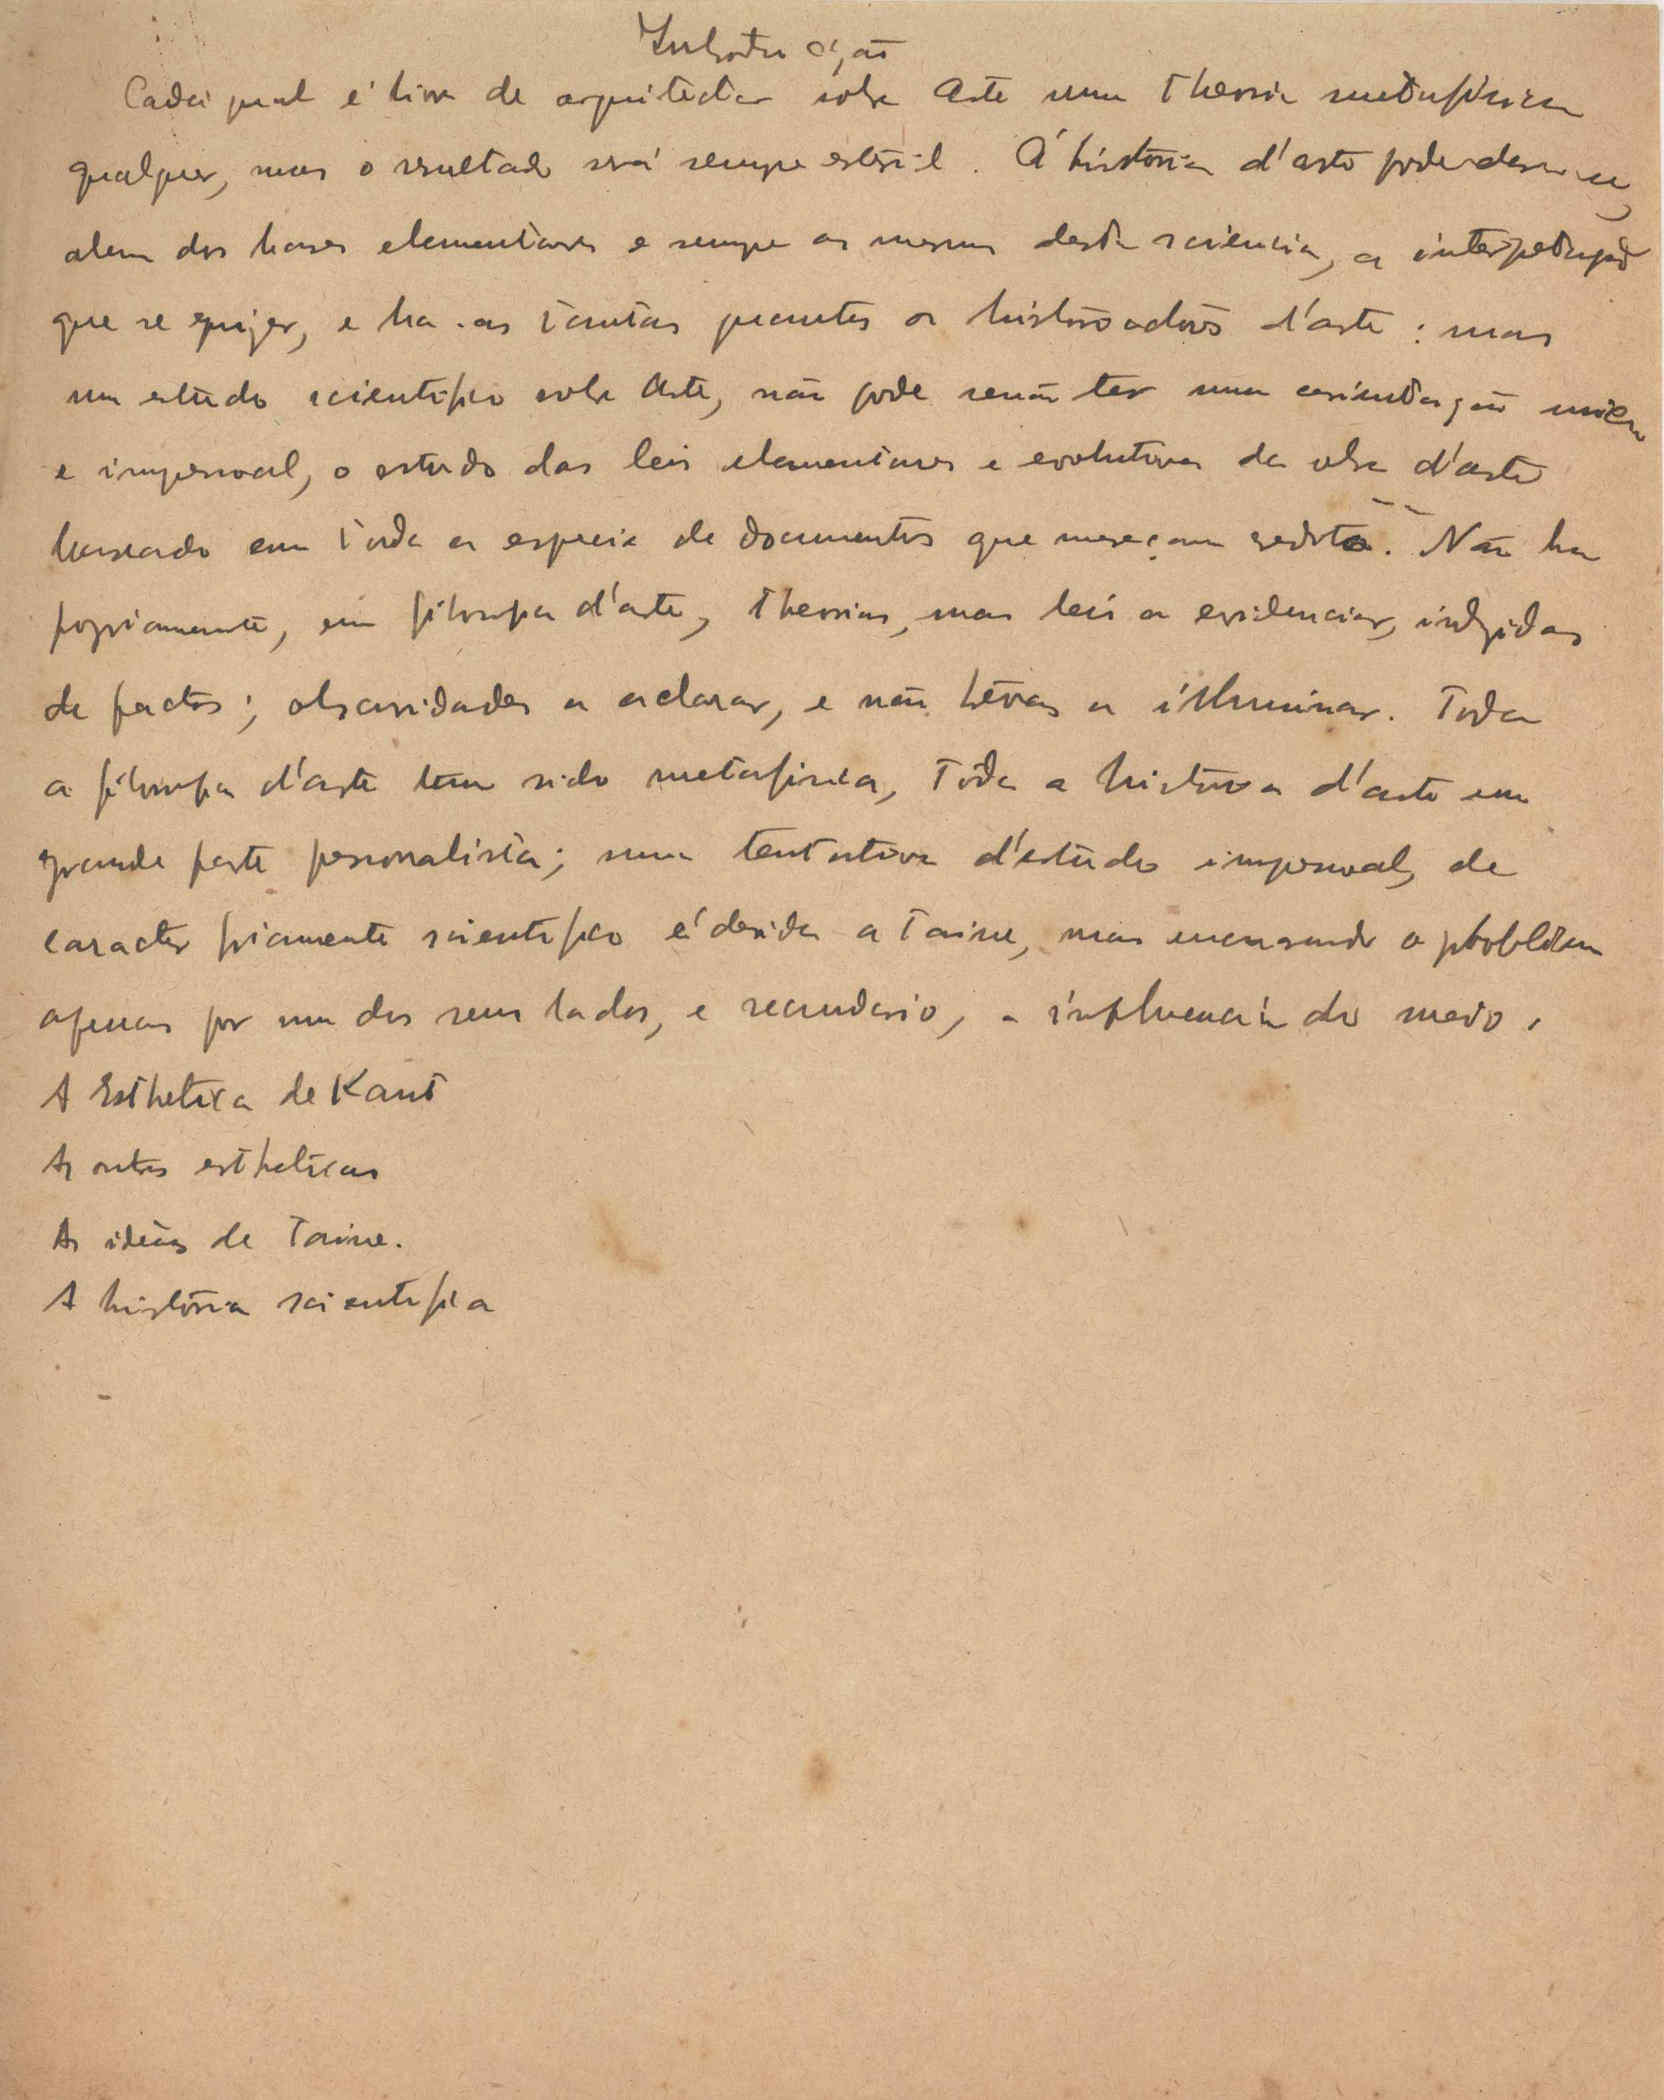 Introducção
Cada qual é livre de arquitectar sobre Arte uma theoria metafisica
qualquer, mas o resultado será sempre esteril. Á historia d'arte pode dar-se,
alem das bases elementares e sempre as mesmas desta sciencia, a interpretação
que se quizer, e ha-as tantas quantos os historiadores d'arte: mas
um estudo scientifico sobre Arte, não pode senão ter uma orientação unica
e impessoal, o estudo das leis elementares e evolutivas da obra d'arte
baseado em toda a especie de documentos que mereçam credito. Não ha
propriamente, em filosofia d'arte, theorias, mas leis a evidenciar, induzidas
de factos; obscuridades a aclarar, e não trevas a illuminar. Toda
a filosofia d'arte tem sido metafisica, toda a historia d'arte em
grande parte personalista; uma tentativa d'estudo impessoal, de
caracter friamente scientifico é devida a Taine, mas encarando o problema
apenas por um dos seus lados, e secundario, a influencia do meio.
A Esthetica de Kant
As outras estheticas
As ideias de Taine.
A historia scientifica